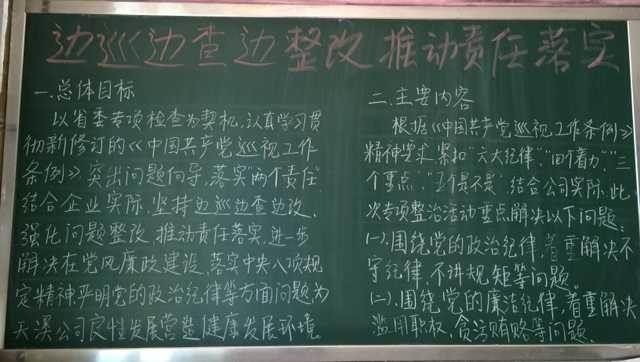 边巡边查边整改 推动责任落实
一.总体目标
以省委专项检查为契机,认真学习贯
彻新修订的《中国共产党巡视工作
条例》突出问题向导,落实两个责任
结合企业实际,坚持边巡边查边改,
强化问题整改,推动责任落实,进一步
解决在党风廉政建设、落实中央八项规
定精神严明党的政治纪律等方面问题为
天溪公司良性发展营造健康发展环境
二.主要内容
根据《中国共产党巡视工作条例》
精神要求,紧扣“六大纪律”,“四个着力”,“三
个重点”,“五个是不是”结合公司实际,此
次专项整治活动重点解决以下问题:
(一).围绕党的政治纪律,着重解决不
守纪律、不讲规矩等问题。
(二).围绕党的廉洁纪律,着重解决
滥用职权、贪污贿赂等问题.